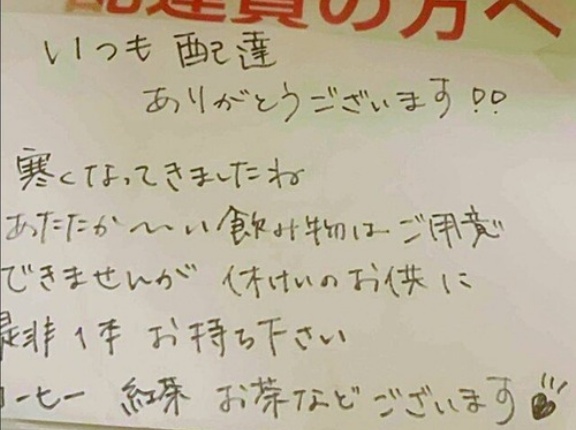 配達員の方へ
いつも 配達
ありがとうございます!!
寒くなってきましたね
あたたか〜い飲み物はご用意
できませんが 休けいのお供に
是非1本 お持ち下さい
コーヒー 紅茶 お茶などございます